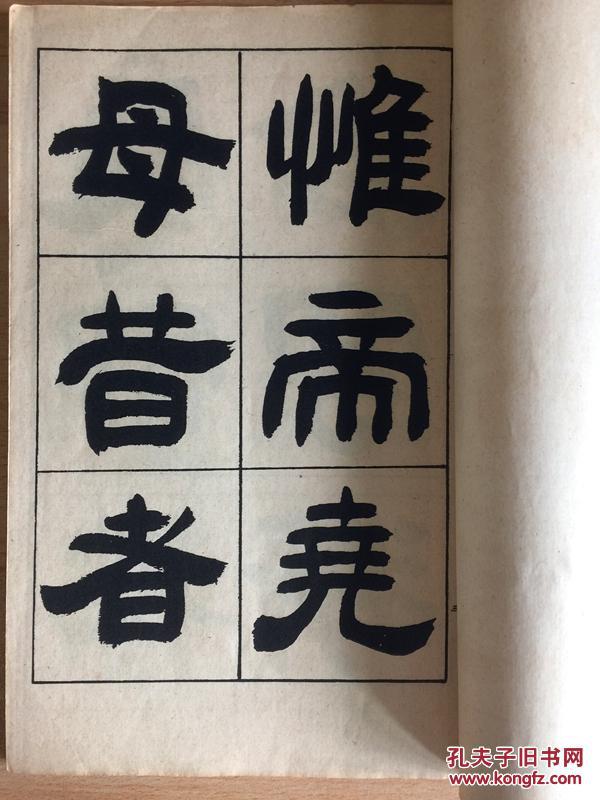 惟帝堯
母昔者
孔夫子旧书网
www.kongfz.com